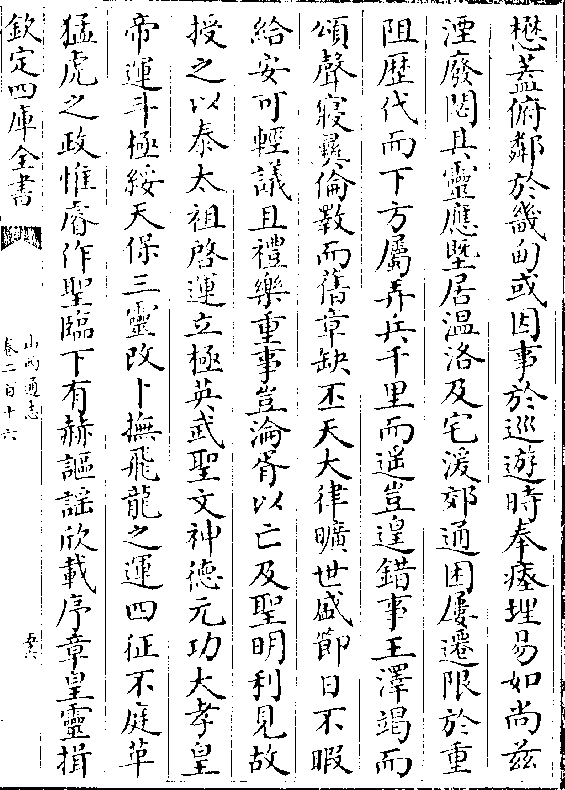 懋蓋俯鄰於畿甸或因事於巡遊時奉瘞埋易如尚兹
湮廢閟其靈應曁居温洛及宅湲郊通困屢遷限於重
阻歴代而下方屬弄兵千里而遥豈遑錯事王澤竭而
頌聲寢彛倫斁而舊章缺丕天大律曠世盛節日不暇
給安可輕議且禮樂重事豈淪胥以亡及聖明利見故
授之以泰太祖啓運立極英武聖文神德元功大孝皇
帝運斗極綏天保三靈改卜撫飛龍之運四征不庭革
猛虎之政惟睿作聖臨下有赫謳謡欣載序章皇靈揖
欽定四庫全書
山西通志
卷二百十六